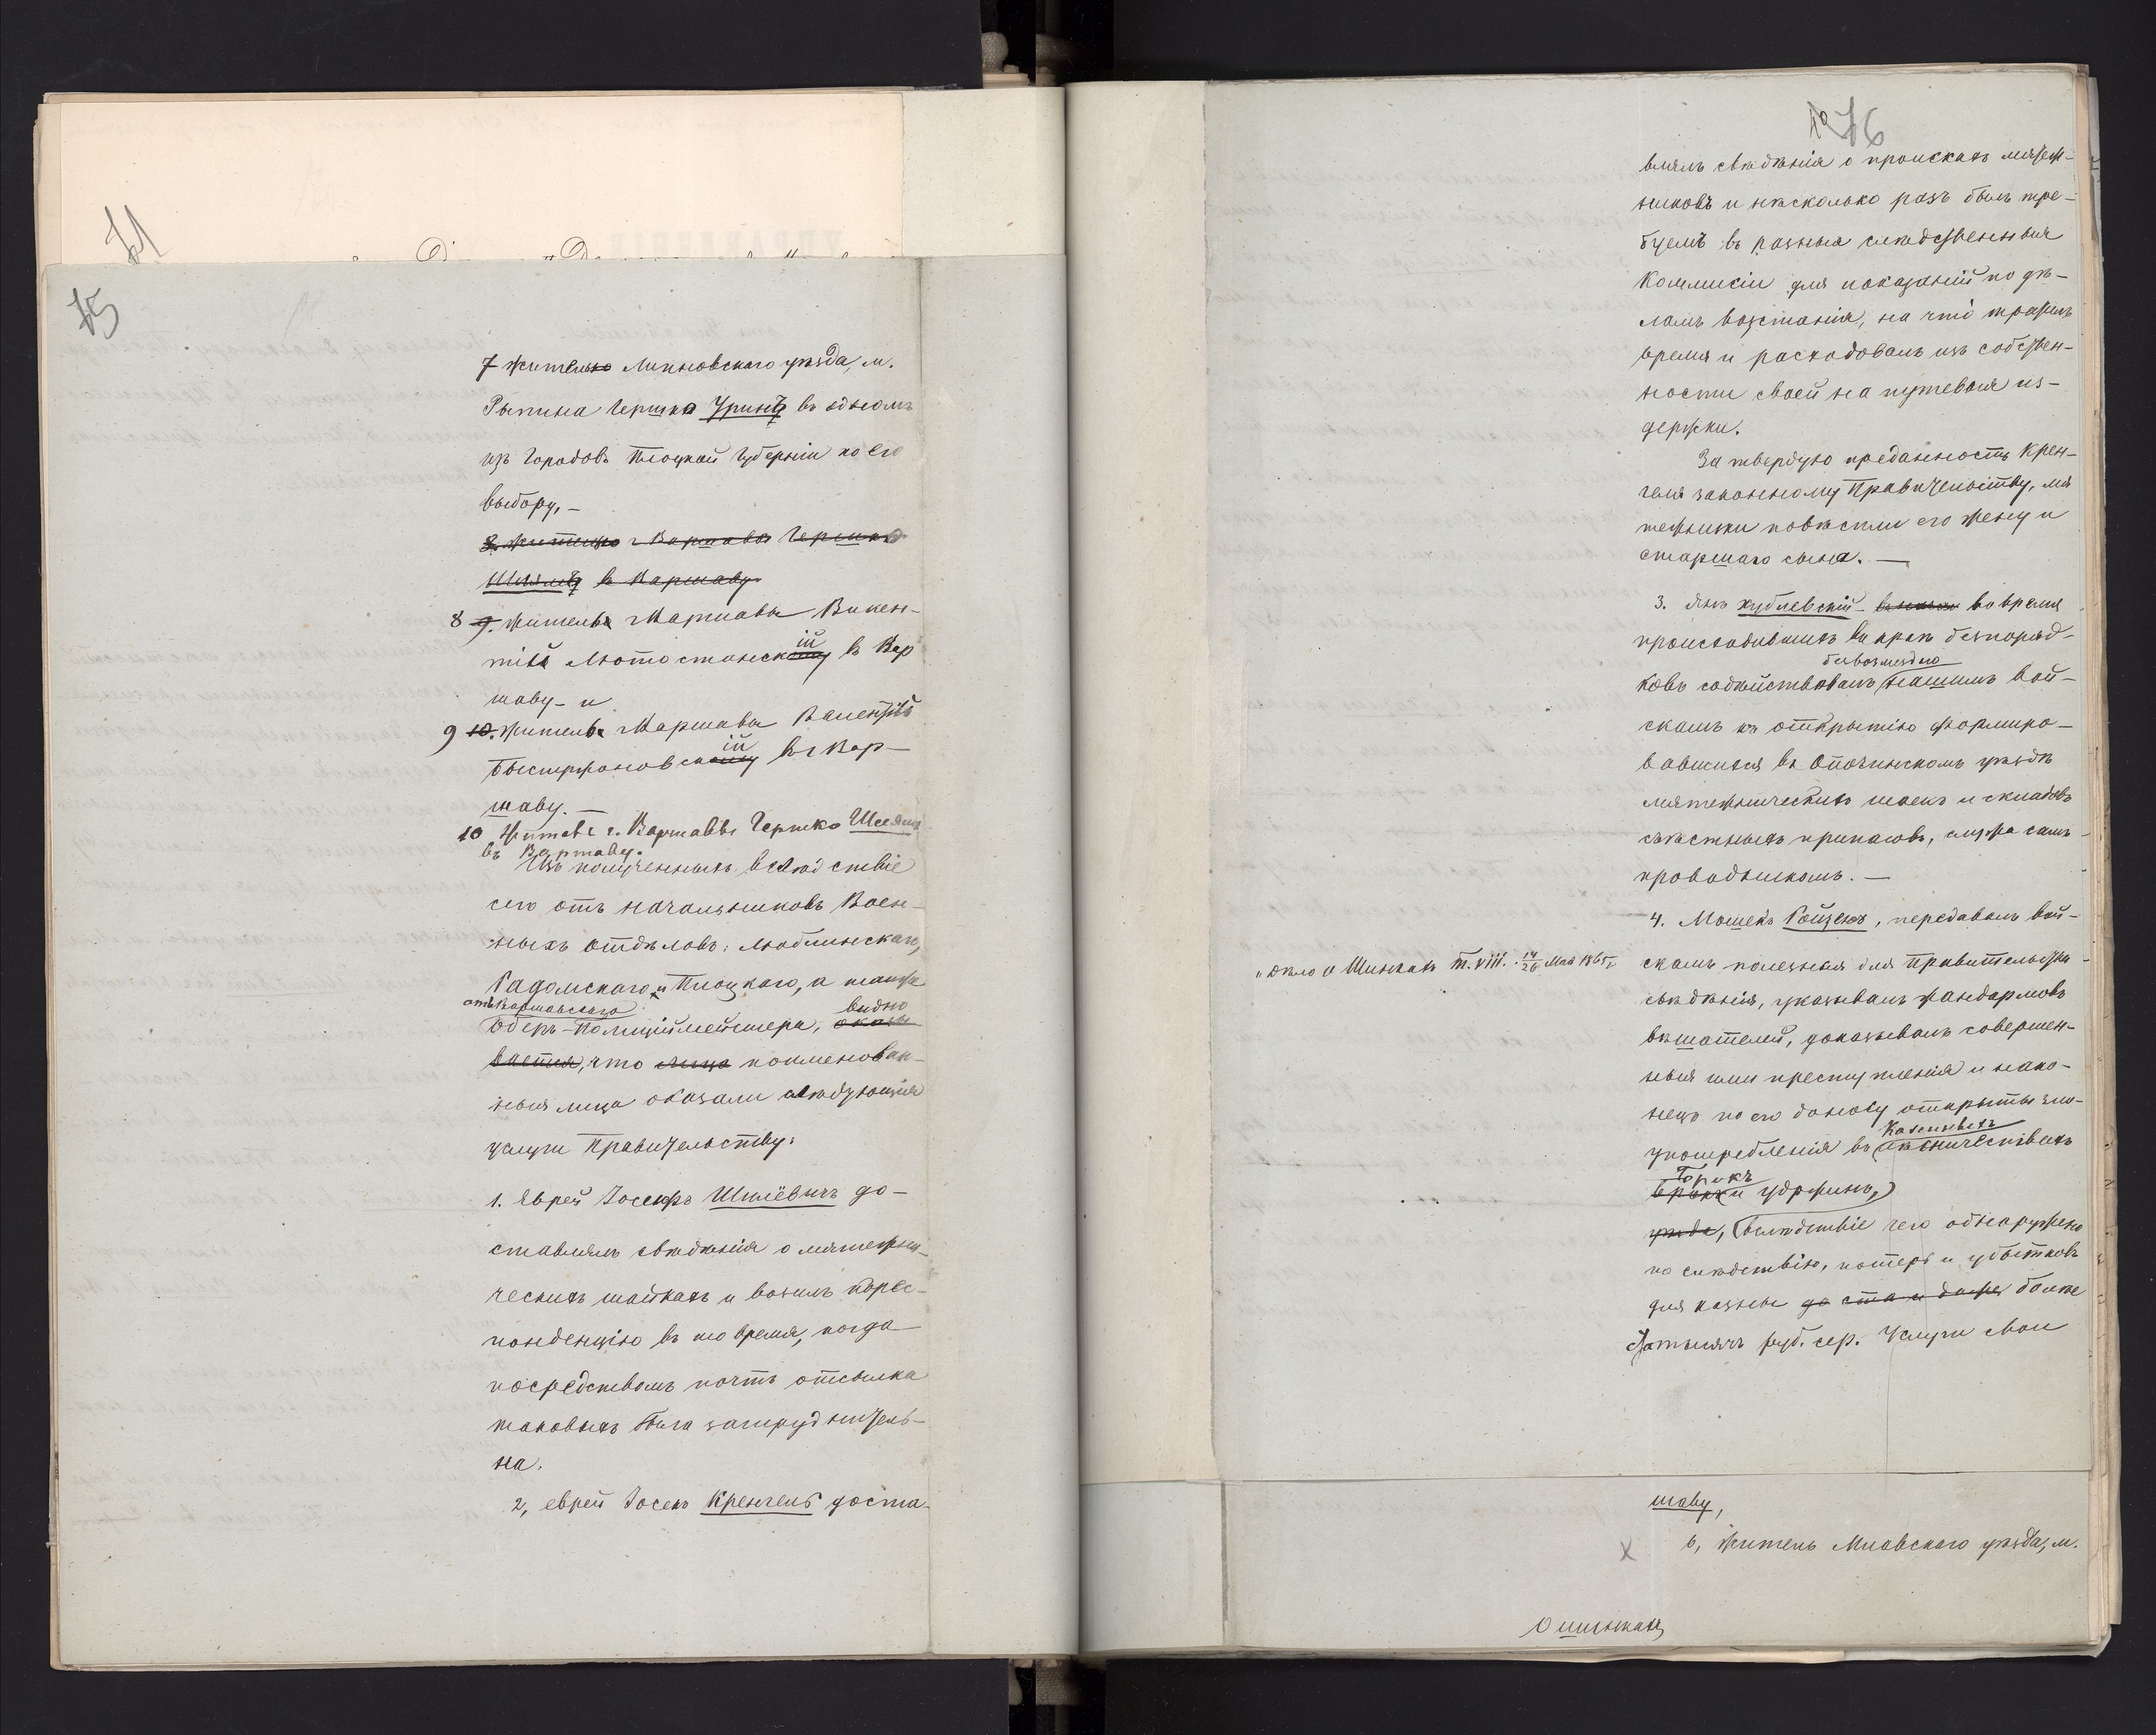 75
7 жителю Липновскаго уѣзда, м.
Рыпина Гершка Гринъ въ одномъ
изъ городовъ Плоцкой Губерніи по его
выбору, —
8. жителю г Варшавы Гершка
въ Варшаву
8 9. житель Варшавы Викен-
тій Лютостанскій въ Вар
шаву — и
9 10. житель Варшавы Валентій
Быстржоновскій въ г Вар-
шаву. —
10 Жител г. Варшавы Гершко
въ Варшаву.
Изъ полученныхъ вслѣдствіе
сего отъ начальниковъ Воен-
ныхъ отдѣловъ: Люблинскаго,
Радомскаго и Плоцкаго, а также
отъ Варшавскаго видно
Оберъ-Полиціймейстера, оказы
вается, что лица поименован-
ныя лица оказали слѣдующія
услуги Правительству:
1. Еврей Іосифъ Шмлёвичъ до-
ставлялъ свѣдѣнія о мятежни-
ческихъ шайкахъ и возилъ корес-
понденцію въ то время, когда
посредствомъ почтъ отсылка
таковыхъ была затруднитель-
на.
2, еврей Іосекъ Кренгель доста-
76
влялъ свѣдѣнія о проискахъ мятеж-
никовъ и нѣсколько разъ былъ тре-
буемъ въ разныя слѣдственныя
Коммисіи для показаній по дѣ-
ламъ возстанія, на что тратилъ
время и расходовалъ изъ собствен-
ности своей на путевыя из-
держки.
За твердую преданность Крен-
геля законному Правительству, мя
тежники повѣсили его жену и
старшаго сына. —
3. Янъ Кублевскій во время
происходившихъ въ краѣ безпоряд-
безвозмездно
ковъ содѣйствовалъ нашимъ вой-
скамъ къ открытію формиро-
вавшихся въ Опочинскомъ уѣздѣ
мятежническихъ шаекъ и складовъ
съѣстныхъ припасовъ, служа самъ
проводникомъ. —
4. Мошекъ Ройзенъ, передавалъ вой-
„Дѣло о Шинкахъ т. VIII. 14/26 Мая 1865 г.
скамъ полезныя для Правительства
свѣдѣнія, указывалъ жандармовъ
вѣшателей, доказывалъ совершен-
ныя ими преступленія и нако-
нецъ по его доносу открыты зло-
Казенныхъ
употребленія въ лѣсничествахъ
Брокъ
Брокъ и Удржинъ,
уѣзда, вслѣдствіе чего обнаружено
по слѣдствію, потерь и убытковъ
для казны до ста и даже болѣе
ста тысячъ руб. сер. Услуги свои
шаву,
6, Житель Млавскаго уѣзда, м.
О шинкахъ